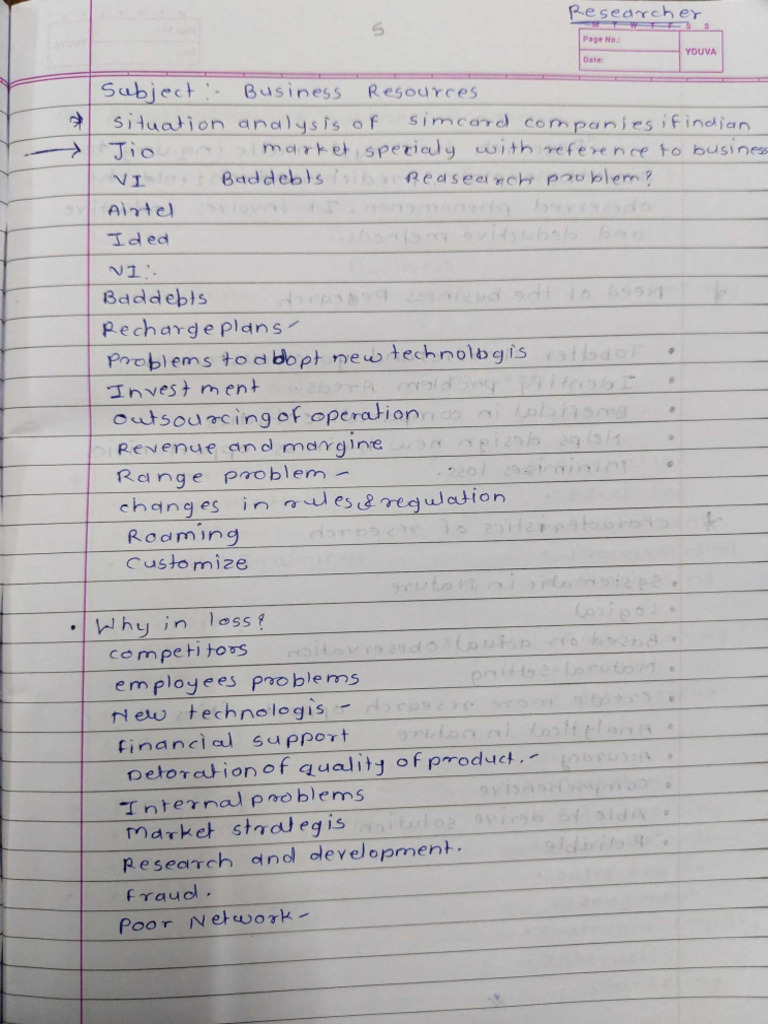 Researcher
5
M T W T F S S
Page No.:
Date:
YOUVA
Subject :- Business Resources
* situation analysis of simcard companies if indian
→ Jio market spezialy with reference to business
VI Baddebts Reasearch problem?
Airtel
Idea
VI:-
Baddebts
Recharge plans -
Problems to adopt new technologis
Investment
outsourcing of operation
Revenue and margine
Range problem -
changes in rules & regulation
Roaming
Customize
• Why in loss?
competitors
employees problems
New technologis -
financial support
Detoration of quality of product. -
Internal problems
Market strategis
Research and development.
fraud.
Poor Network -